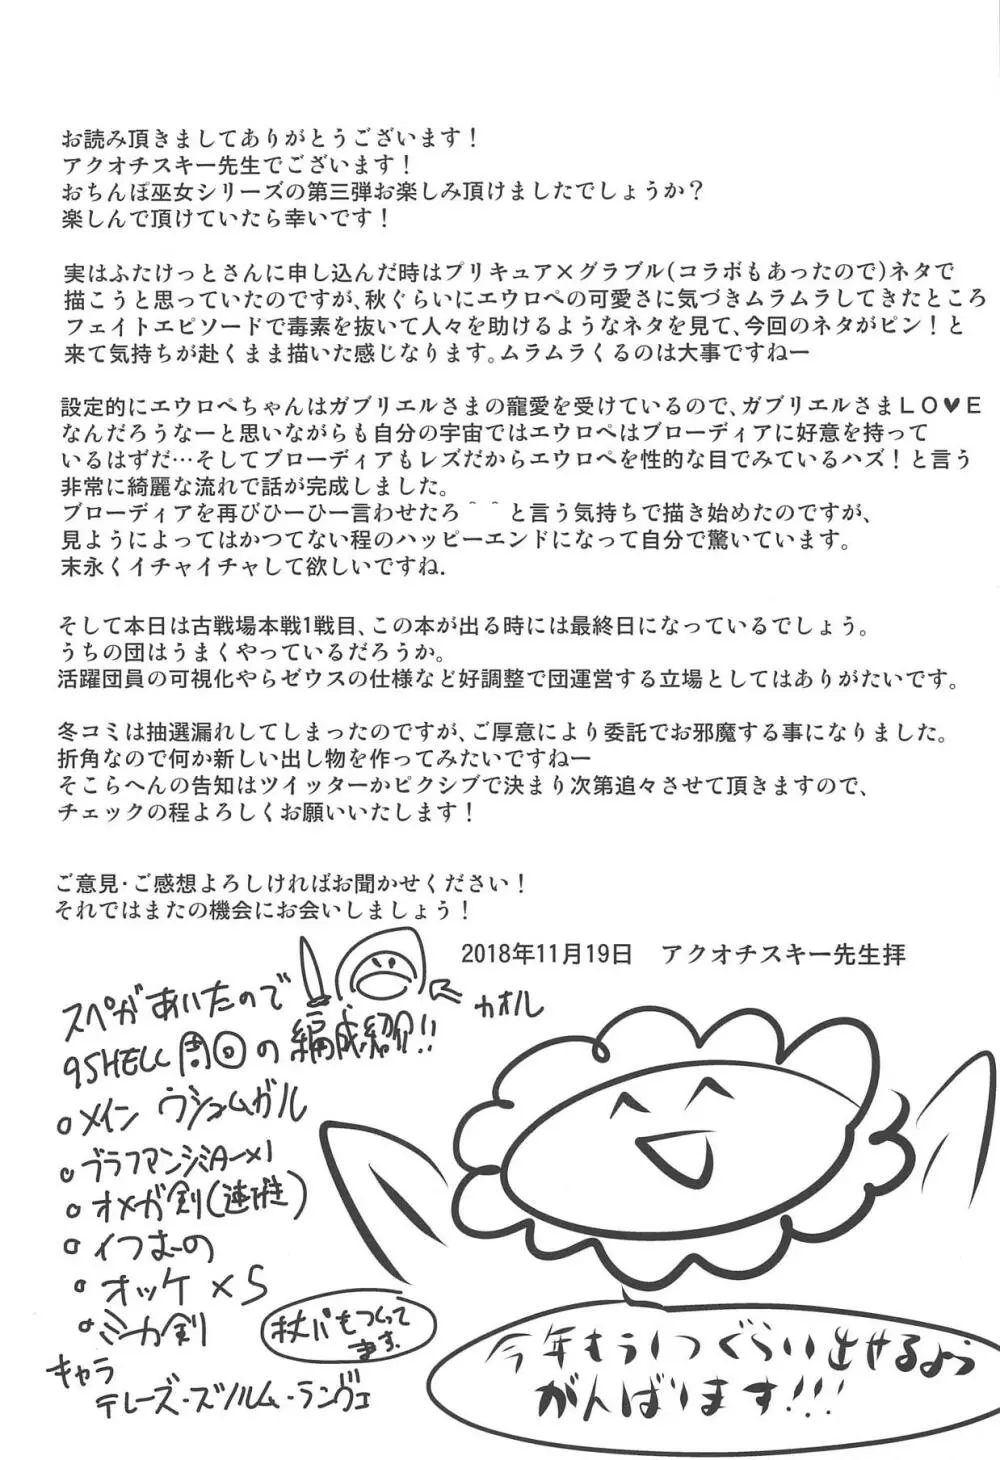 お読み頂きましてありがとうございます！
アクオチスキー先生でございます！
おちんぽ巫女シリーズの第三弾お楽しみ頂けましたでしょうか？
楽しんで頂けていたら幸いです！
実はふたけっとさんに申し込んだ時はプリキュア×グラブル(コラボもあったので)ネタで
描こうと思っていたのですが、秋ぐらいにエウロペの可愛さに気づきムラムラしてきたところ
フェイトエピソードで毒素を抜いて人々を助けるようなネタを見て、今回のネタがピン！と
来て気持ちが赴くまま描いた感じなります。ムラムラくるのは大事ですねー
設定的にエウロペちゃんはガブリエルさまの寵愛を受けているので、ガブリエルさまＬＯ♥Ｅ
なんだろうなーと思いながらも自分の宇宙ではエウロペはブローディアに好意を持って
いるはずだ…そしてブローディアもレズだからエウロペを性的な目でみているハズ！と言う
非常に綺麗な流れで話が完成しました。
ブローディアを再びひーひー言わせたろ＾＾と言う気持ちで描き始めたのですが、
見ようによってはかつてない程のハッピーエンドになって自分で驚いています。
末永くイチャイチャして欲しいですね.
そして本日は古戦場本戦1戦目、この本が出る時には最終日になっているでしょう。
うちの団はうまくやっているだろうか。
活躍団員の可視化やらゼウスの仕様など好調整で団運営する立場としてはありがたいです。
冬コミは抽選漏れしてしまったのですが、ご厚意により委託でお邪魔する事になりました。
折角なので何か新しい出し物を作ってみたいですねー
そこらへんの告知はツイッターかピクシブで決まり次第追々させて頂きますので、
チェックの程よろしくお願いいたします！
ご意見・ご感想よろしければお聞かせください！
それではまたの機会にお会いしましょう！
2018年11月19日　アクオチスキー先生拝
カオル
スペがあいたので
9SHELL周回の編成紹介!!
メイン ウシュムガル
ブラフマンシミター×1
オメガ剣(連撃)
イつおーの
オッケ×5
ミカ剣
杖パもつくって
ます.
キャラ
テレーズ・ズルム・ランヴェ
今年もう1つぐらい出せるよう
がんばります!!!